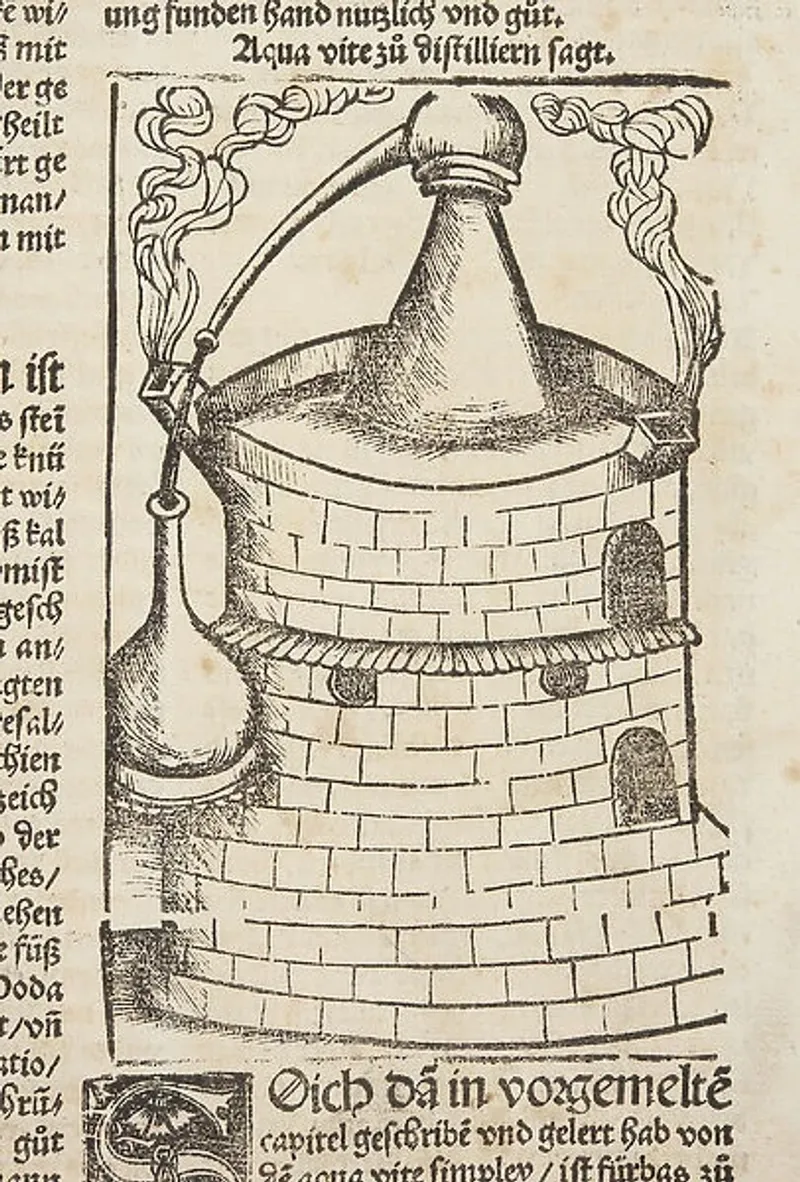 wi⸗
mit
er ge
heilt
rt ge
man/
n mit
n ist
s steī
e knü
t wi⸗
ß kal
mist
gesch
an⸗
gten
esal⸗
chien
zeich
der
hes/
ehen
e füß
Doda
t/vñ
atio/
hrū⸗
gůt
ann
ung funden hand nutzlich vnd gůt.
Aqua vite zů distilliern sagt.
SO ich dā in vorgemeltē
capitel geschribē vnd gelert hab von
dē aqua vite simplex / ist fürbas zů